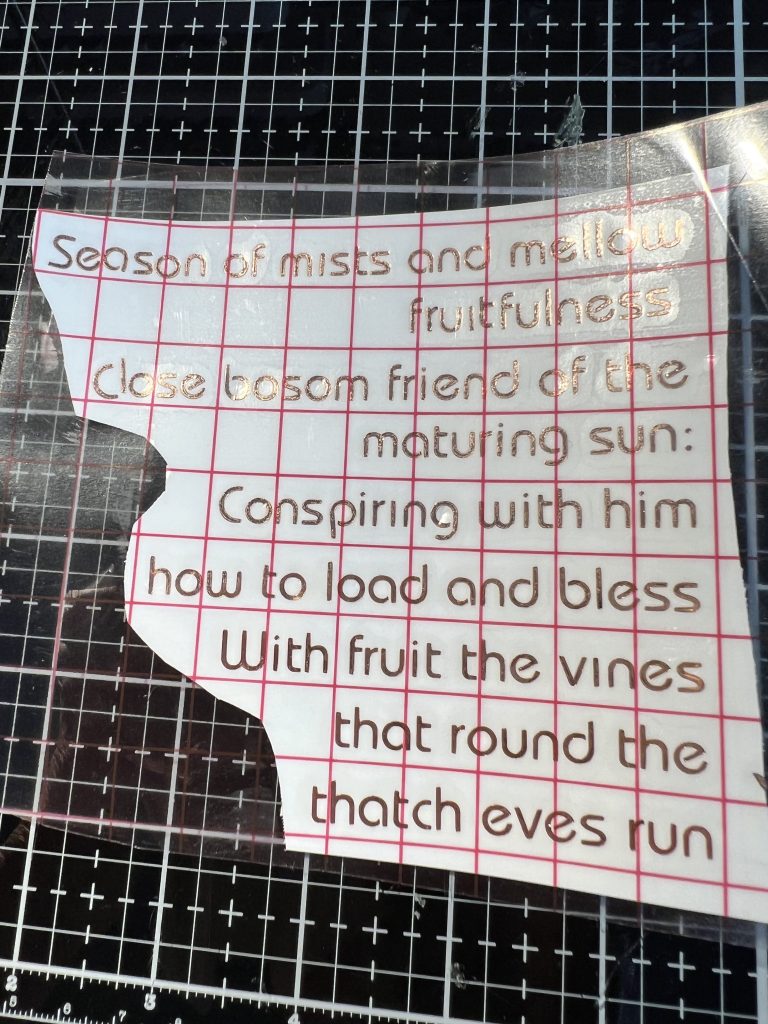 Season of mists and mellow
fruitfulness
Close bosom friend of the
maturing sun:
Conspiring with him
how to load and bless
With fruit the vines
that round the
thatch eves run
2 3 4
5 6 7 8